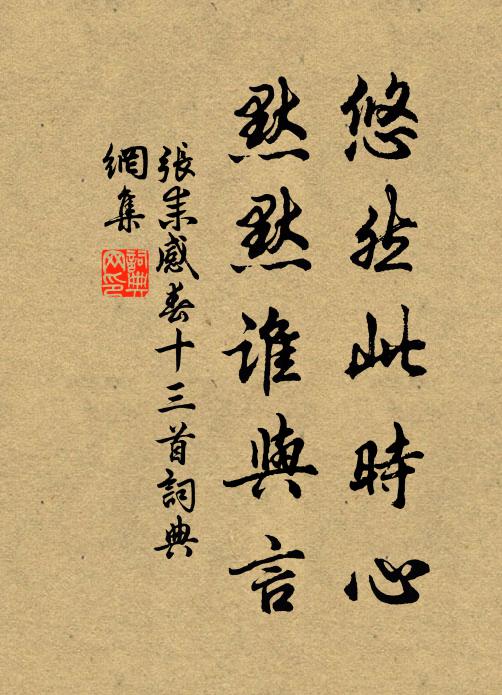 悠然此時心
默默誰與言
張耒感春十三首詞典
網集
詞典
网印